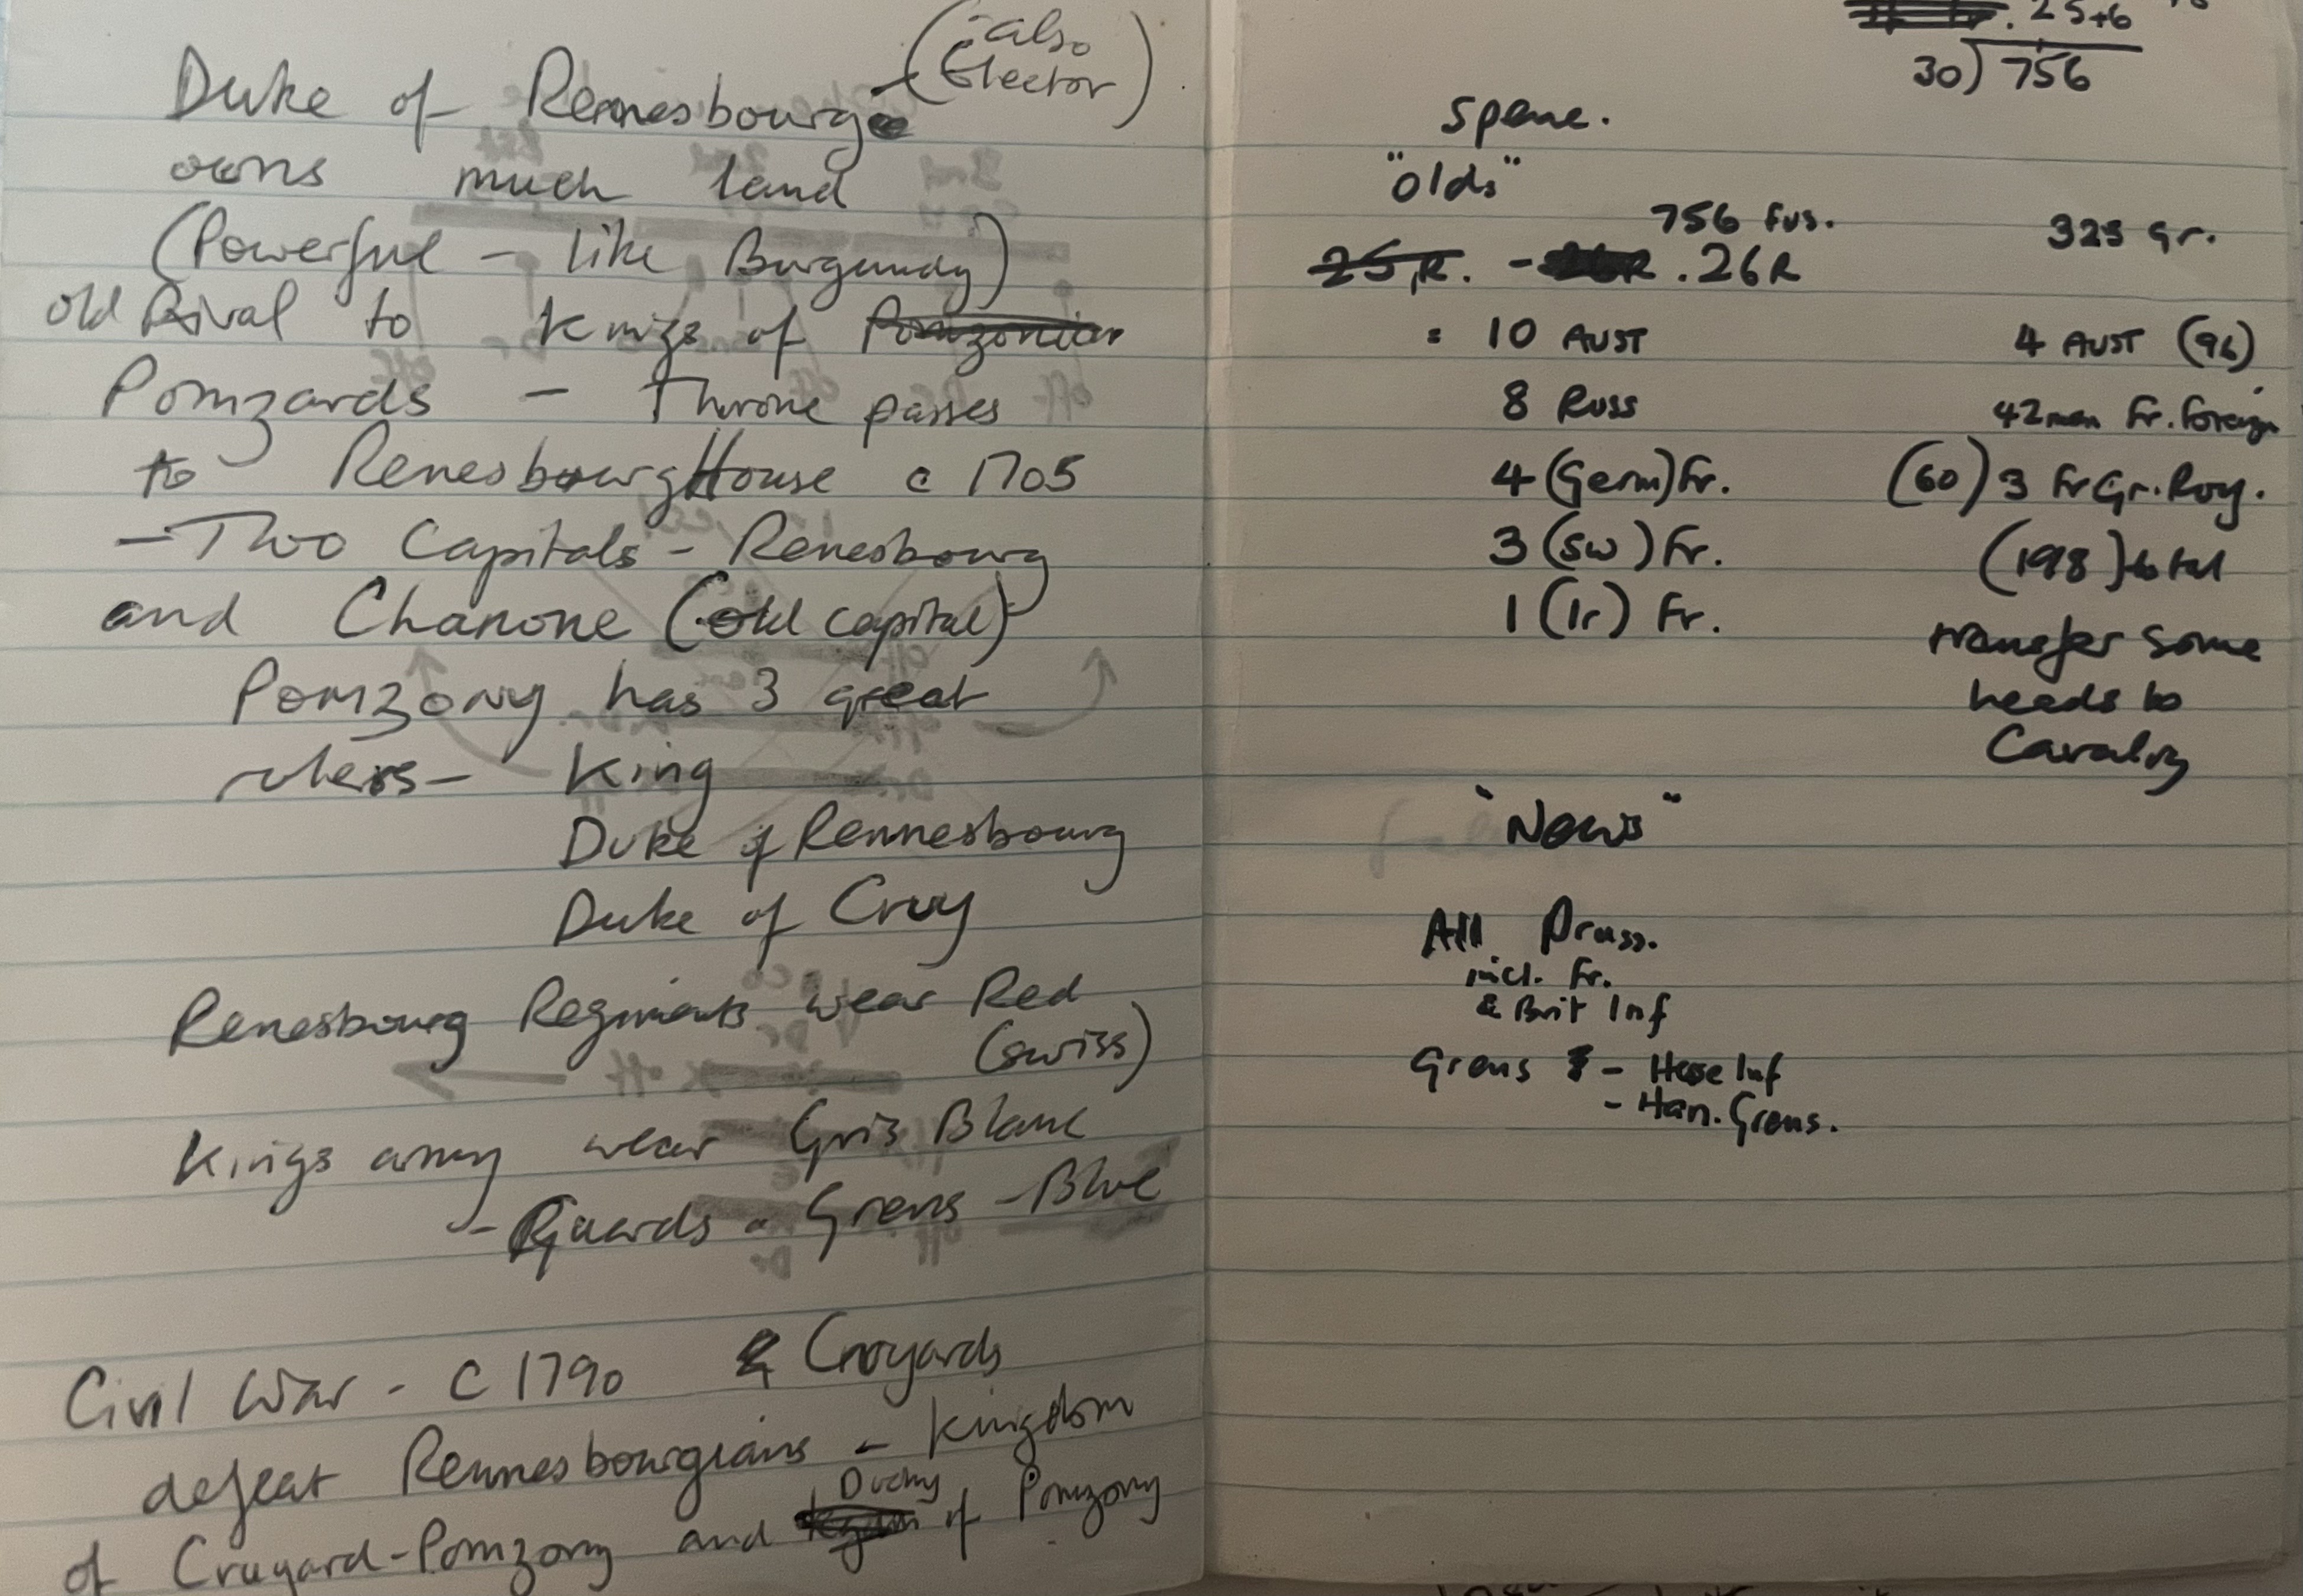 (- also
Elector)
Duke of Rennesbourg -
owns much land
(Powerful - like Burgundy)
old Rival to Kings of
Pomzards - Throne passes
to Renesbourg House c 1705
- Two Capitals - Renesbourg
and Chanone (old capital)
Pomzony has 3 great
rulers - King
Duke of Rennesbourg
Duke of Cruy
Renesbourg Regiments wear Red
(swiss)
Kings army wear Gris Blanc
- Guards - Grens - Blue
Civil War - c 1790 & Cruyards
defeat Rennesbourgians - Kingdom
of Cruyard-Pomzony and Duchy of Pomzony
25+6
30) 756
"olds"
756 Fus. 323 Gr.
25,R. - 26R . 26R
= 10 AUST 4 AUST (96)
8 Russ 42 men Fr. Foreign
4 (Germ) Fr. (60) 3 Fr Gr. Roy.
3 (Sw) Fr. (198) total
1 (Ir) Fr. transfer some
heads to
Cavalry
"News"
All Pruss.
incl. Fr.
& Brit Inf
Grens - Hesse Inf
- Han. Grens.